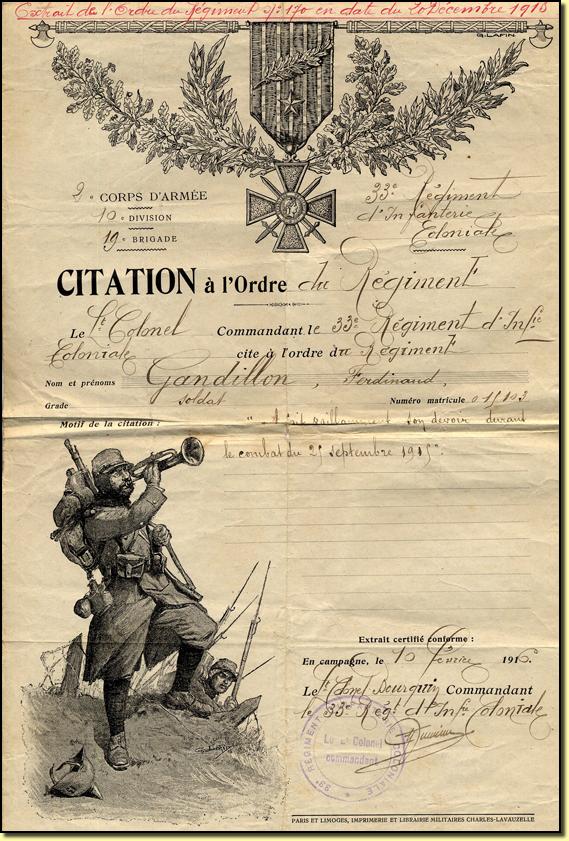 Extrait de l'Ordre du Régiment N: 170 en date du 20 Décembre 1915
G. LAFIN
2e CORPS D'ARMÉE
10e DIVISION
19e BRIGADE
33e Régiment
d'Infanterie
Coloniale
CITATION à l'Ordre du Régiment
Le Lt Colonel Commandant le 33e Régiment d'Infie
Coloniale cite à l'ordre du Régiment
Nom et prénoms Gandillon, Ferdinand,
Grade soldat Numéro matricule 015103
Motif de la citation : "A fait vaillamment son devoir durant
le combat du 25 septembre 1915".
Extrait certifié conforme :
En campagne, le 10 février 1916
Le Lt Colonel Bourguin Commandant
le 33e Régt d'Infie Coloniale
33e RÉGIMENT COLONIALE
Le Lt Colonel
commandant
PARIS ET LIMOGES, IMPRIMERIE ET LIBRAIRIE MILITAIRES CHARLES-LAVAUZELLE